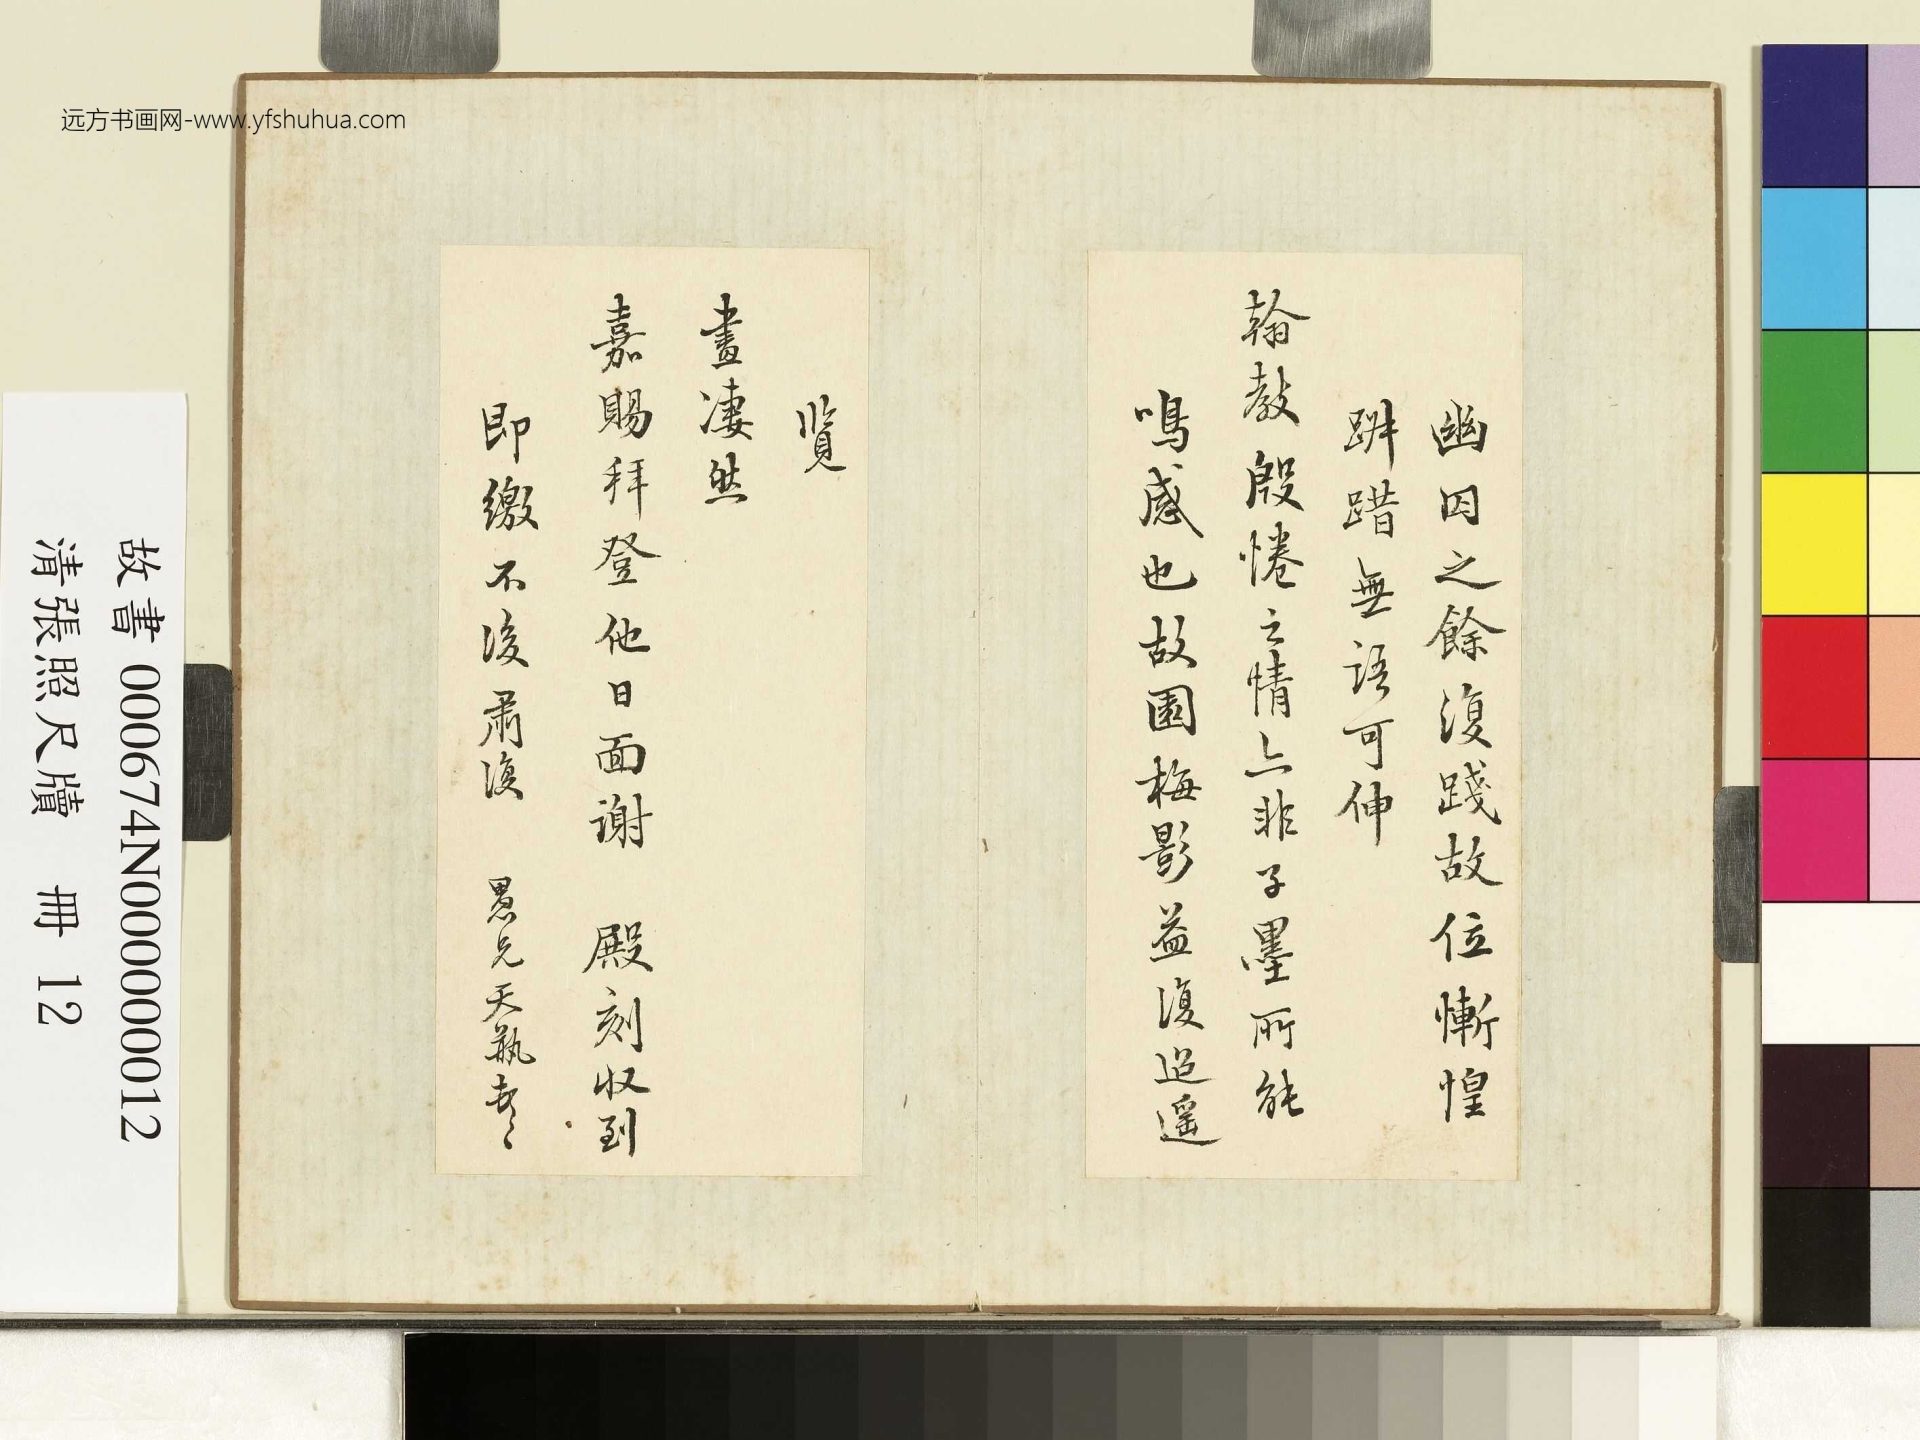 远方书画网-www.yfshuhua.com
幽囚之餘復踐故位慚惶
跰踖無語可伸
翰教殷惓之情亦非子墨所能
鳴感也故園梅影益復迢遥
覧
畫凄然
嘉賜拜登他日面谢 殿刻收到
即繳不復肅復 愚兄天瓶
故書 000674N000000012
清張照尺牘 冊 12